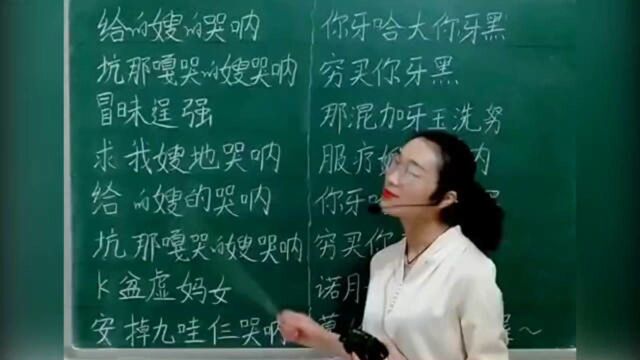 给的嫂的哭呐
坑那嘎哭的嫂哭呐
冒昧逞强
求我嫂地哭呐
给的嫂的哭呐
坑那嘎哭的嫂哭呐
k盆虚妈女
安掉九哇仨哭呐
你牙哈大你牙黑
穷买你牙黑
那混加牙玉洗努
服疗
你牙
穷买你
诺月